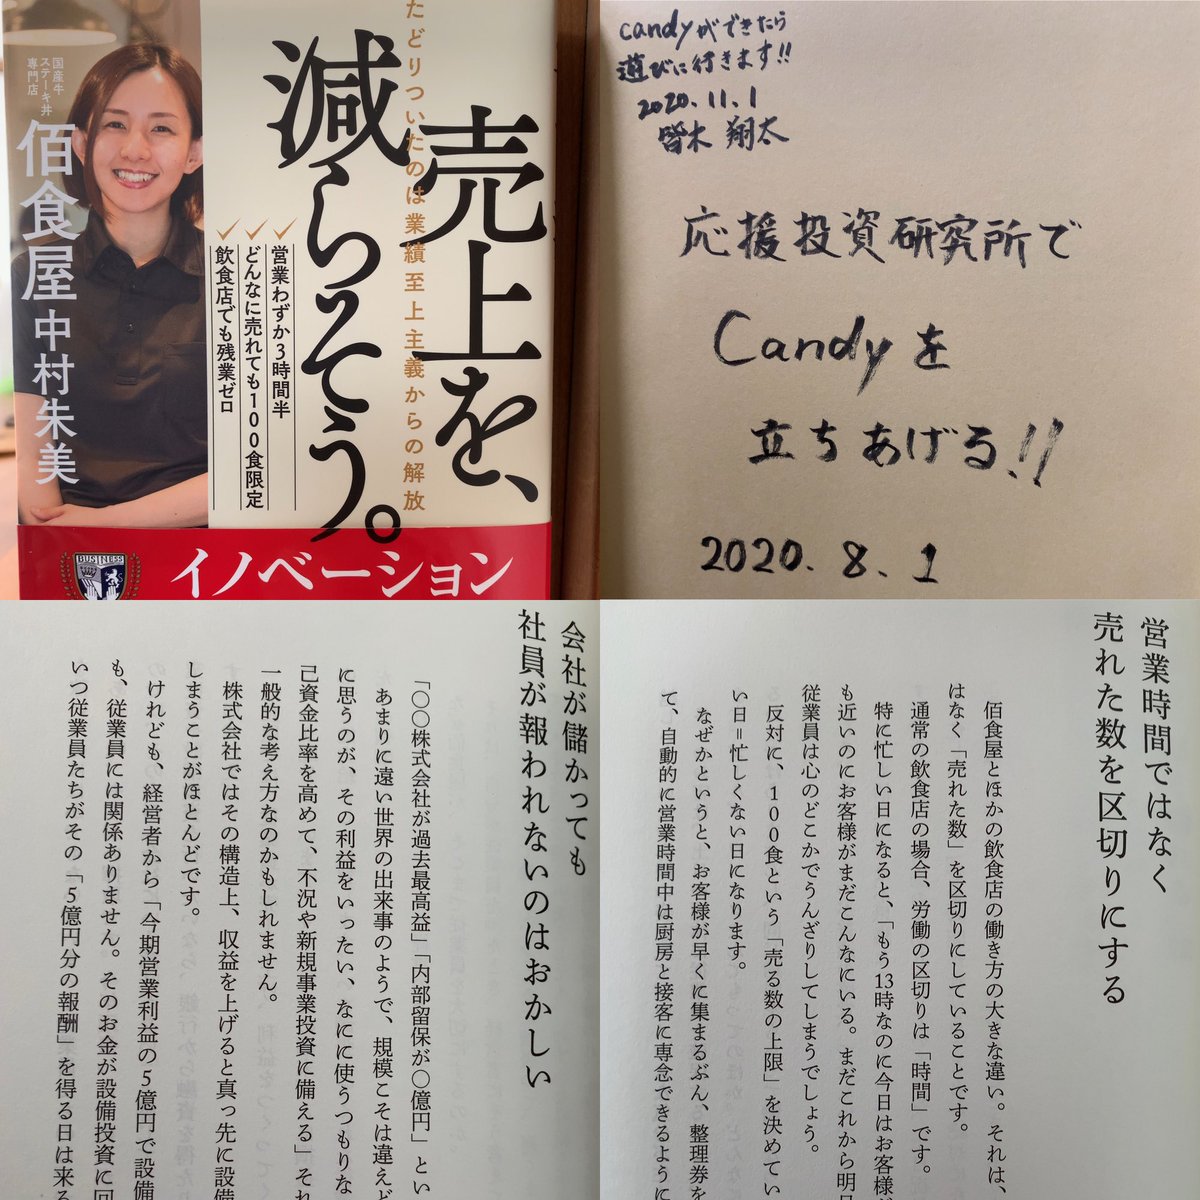 売上を、
減らそう。
たどりついたのは業績至上主義からの解放
営業わずか3時間半
どんなに売れても100食限定
飲食店でも残業ゼロ
国産牛
ステーキ丼
専門店
佰食屋 中村朱美
BUSINESS
イノベーション
candyができたら
遊びに行きます!!
2020.11.1
皆木 翔太
応援投資研究所で
Candyを
立ちあげる!!
2020.8.1
会社が儲かっても
社員が報われないのはおかしい
「〇〇株式会社が過去最高益」「内部留保が〇億円」とい
あまりに遠い世界の出来事のようで、規模こそは違えど
に思うのが、その利益をいったい、なにに使うつもりな
己資金比率を高めて、不況や新規事業投資に備える」それ
一般的な考え方なのかもしれません。
株式会社ではその構造上、収益を上げると真っ先に設備
しまうことがほとんどです。
けれども、経営者から「今期営業利益の5億円で設備
も、従業員には関係ありません。そのお金が設備投資に回
いつ従業員たちがその「5億円分の報酬」を得る日は来る
営業時間ではなく
売れた数を区切りにする
佰食屋とほかの飲食店の働き方の大きな違い。それは、
はなく「売れた数」を区切りにしていることです。
通常の飲食店の場合、労働の区切りは「時間」です。
特に忙しい日になると、「もう13時なのに今日はお客様が
も近いのにお客様がまだこんなにいる。まだこれから明日
従業員は心のどこかでうんざりしてしまうでしょう。
反対に、100食という「売る数の上限」を決めてい
い日=忙しくない日になります。
なぜかというと、お客様が早くに集まるぶん、整理券を
て、自動的に営業時間中は厨房と接客に専念できるように